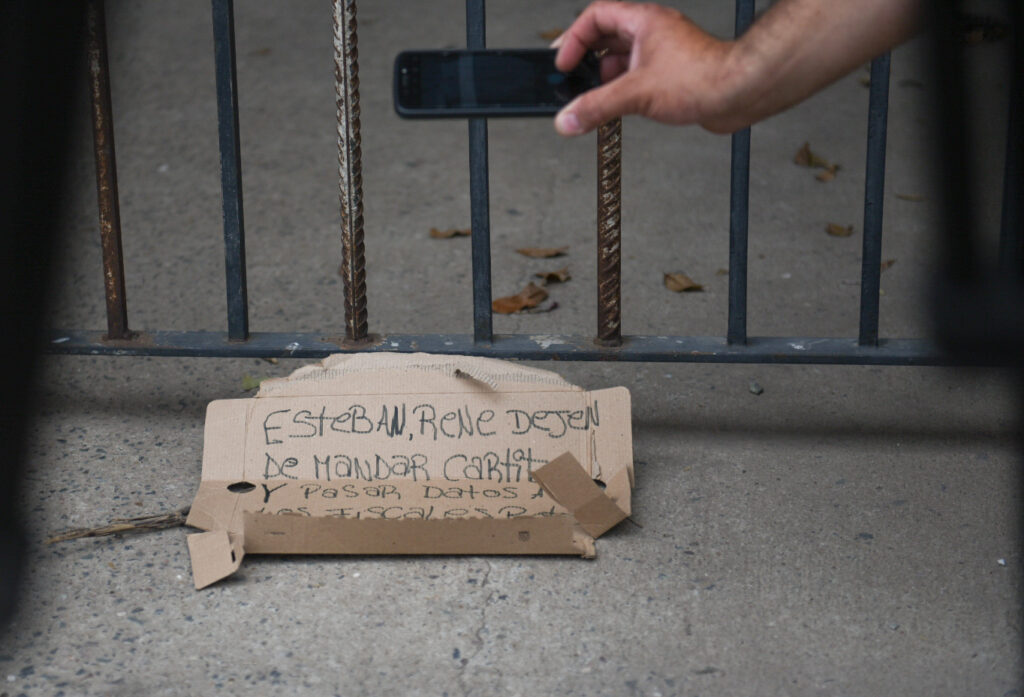 ESteBAN, RENE DEJEN
DE MANDAR
Y PASAR DATOS A
LOS FISCALES